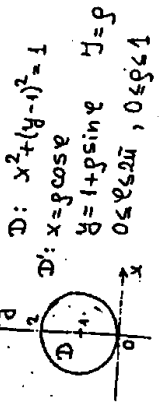 D: x²+(y-1)²=1
D': x=ρcosφ
y=1+ρsinφ J=ρ
0≤φ≤2π, 0≤ρ≤1
y
2
D
1
0
x